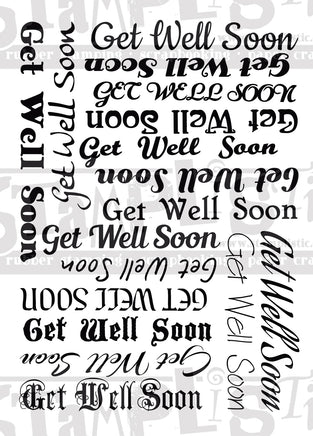 Get Well Soon
Get Well Soon
Get Well Soon
Get Well Soon
GET WELL SOON
Get Well Soon
Get Well Soon
Get Well Soon
Get Well Soon
Get Well Soon
Get Well Soon
GET WELL SOON
Get Well Soon
Get Well Soon
Get Well Soon
Get Well Soon
Get Well Soon